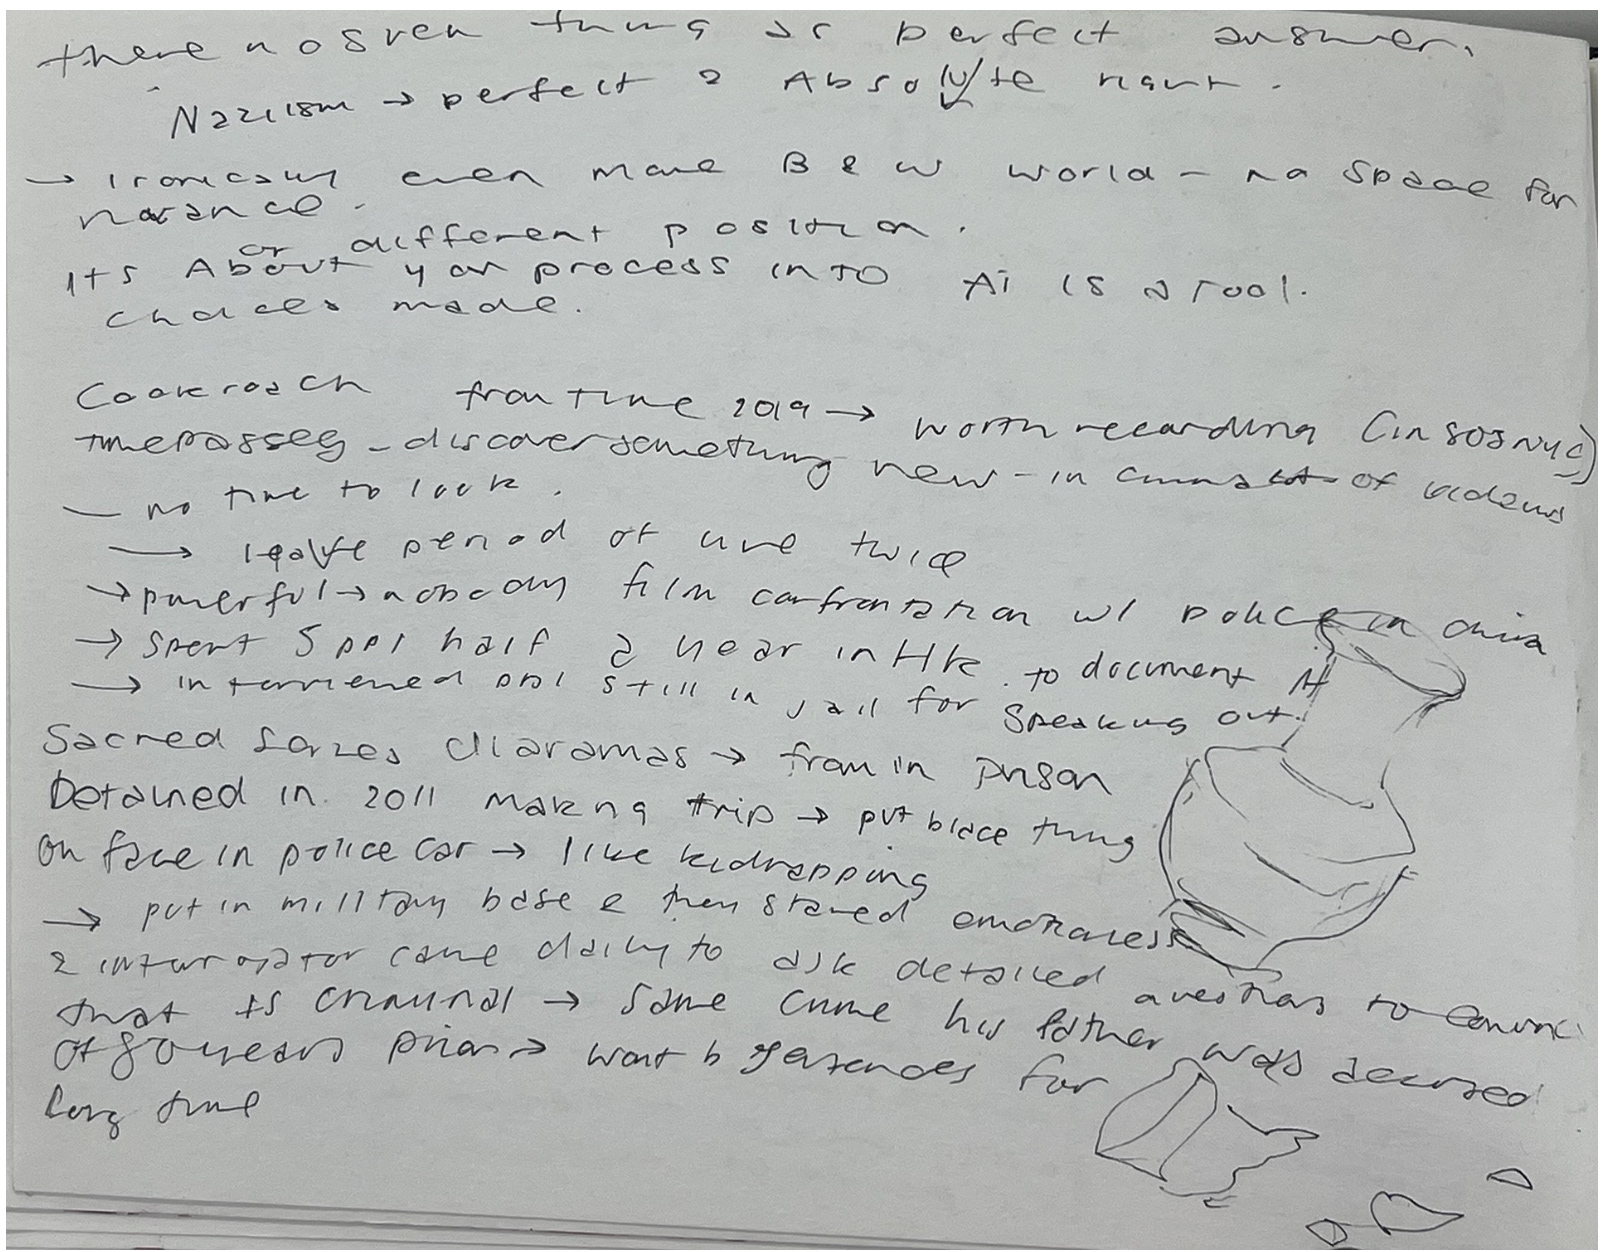 there no such thing as perfect answer.
Nazism → perfect & Absolute right.
→ Ironically even more B & W world - no space for
nuance.
or different position.
Its About your process into AI is a tool.
choices made.
Cockroach from time 2019 → worth recording
time passes - discover something new - in of videos
— no time to look.
→ period of time twice
→ powerful → nobody film confrontation w/ police in china
→ Spent 5 ppl half a year in HK to document it
→ interviewed ppl still in jail for speaking out.
Sacred dioramas → from in prison
Detained in 2011 making trip → put black thing
on face in police car → like kidnapping
→ put in military base & then stared emotionless
& interrogator came daily to ask detailed questions to
that is criminal → same crime his father was accused
of 80 years prior → want b for
long time